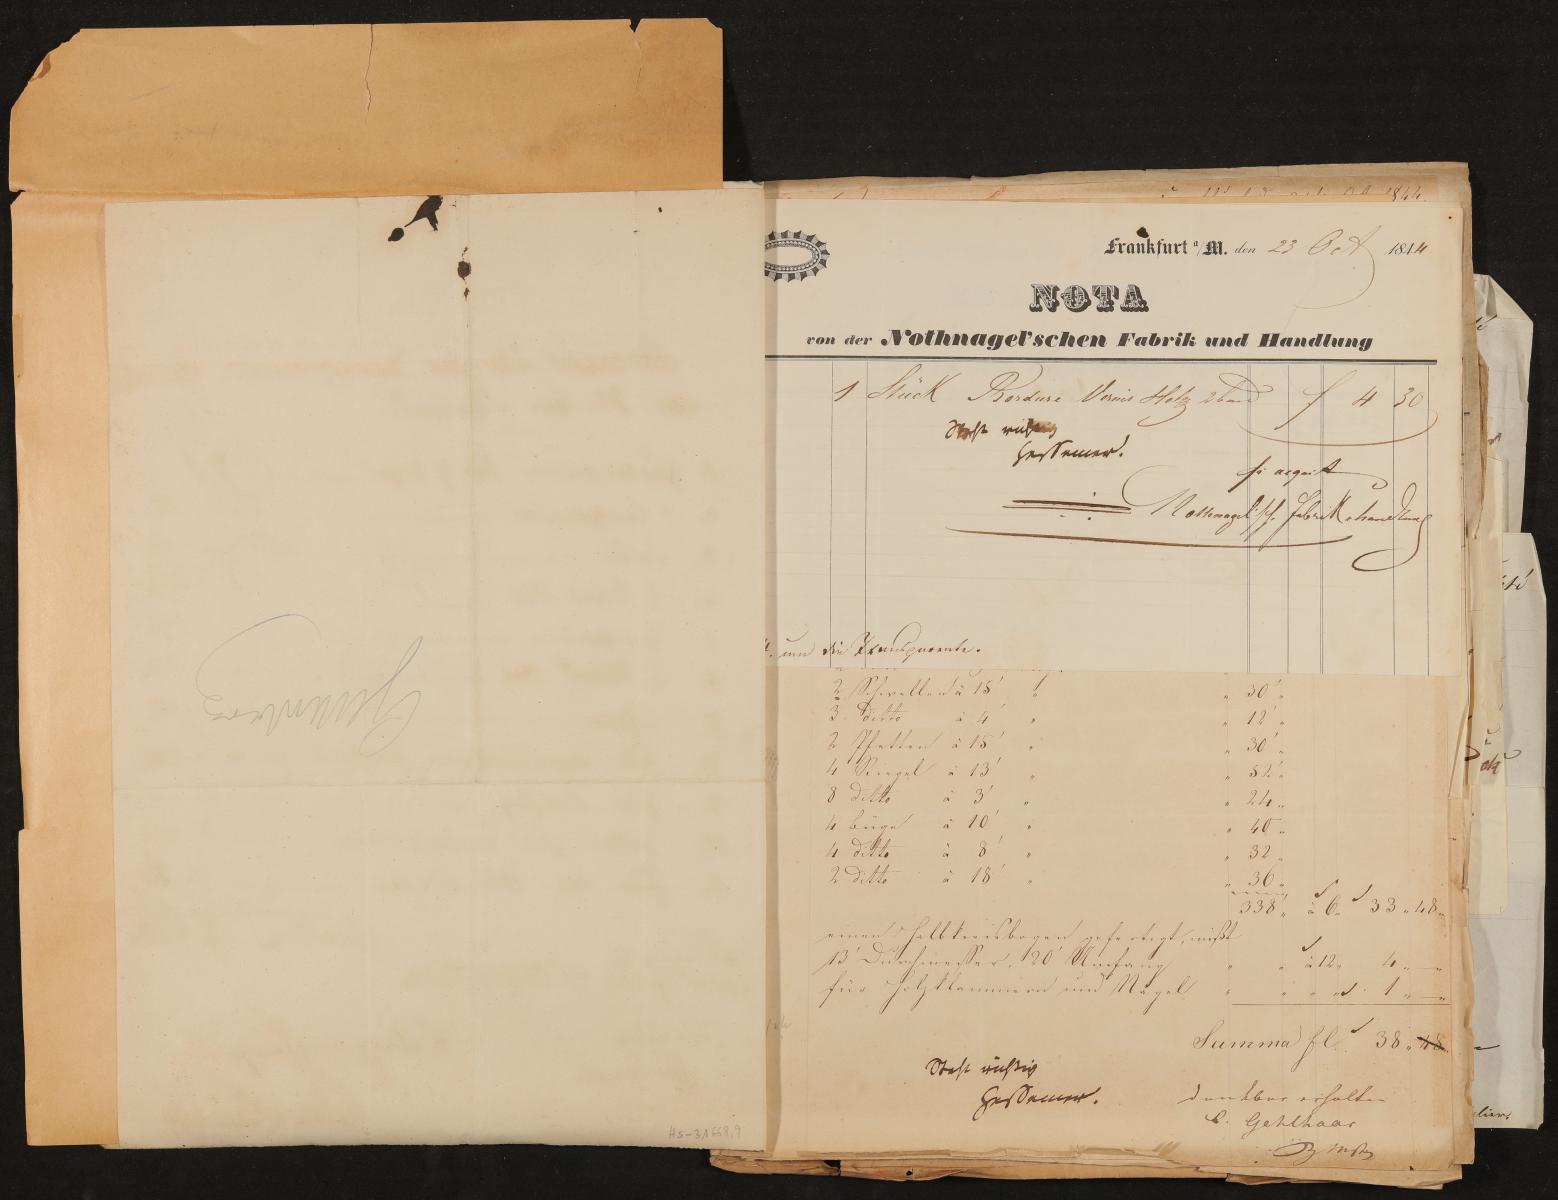 1844.
Frankfurt a/M. den 23 Oct 1844
NOTA
von der Nothnagel'schen Fabrik und Handlung
1 Stück Bordure Vernis Holz f 4 30
Steht richtig
Hessemer.
p acquit
Nothnagel'sche Fabrik & handlung
und die Transparente.
2 Schwellen à 15' " 30' "
3 ditto à 4' " 12' "
2 Pfetten à 15' " 30' "
4 Riegel à 13' " 52' "
8 ditto à 3' " 24 "
4 büge à 10' " 40 "
4 ditto à 8' " 32 "
2 ditto à 18' " 36 "
338' " à 6 33 " 48 "
einen Halbkreisbogen gefertigt, mißt
13' Durchmesser, 20' Umfang " " à 12 4 " — "
für Holzklammern und Nägel " " " " 1 " — "
Summa fl. 38 " 48
Steht richtig
Hessemer.
dankbar erhalten
C. Gehlhaar
HS-31668,9